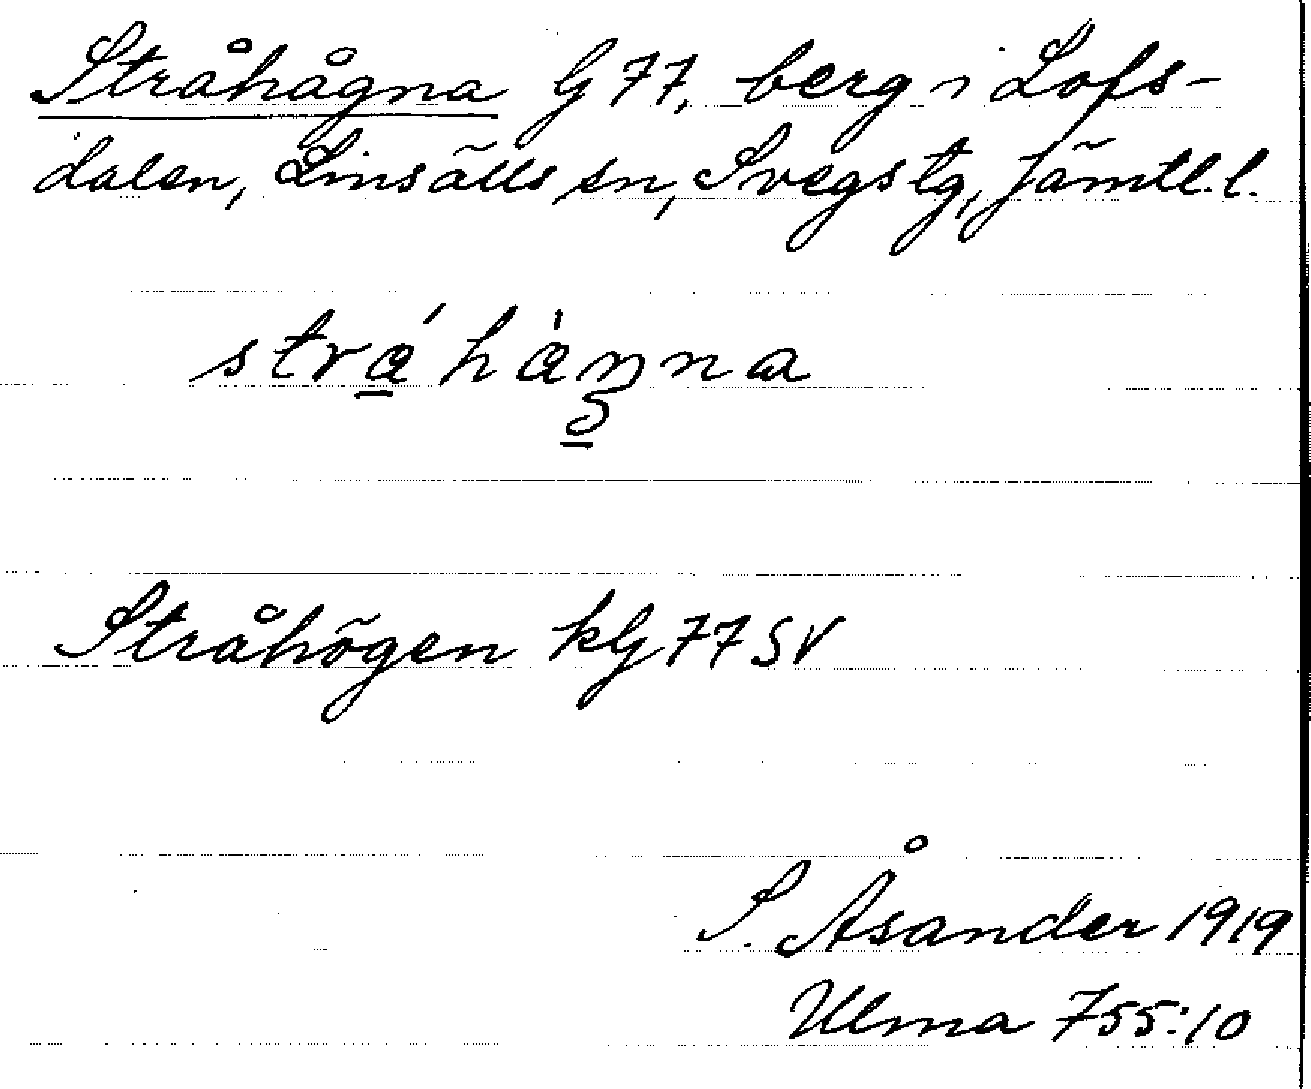 Stråhågna G 77, berg i Lofs-
dalen, Linsälls sn, Svegs tg, Jämtl. l.
Stråhögen kG 77 SV
S. Åsander 1919
Ulma 755:10